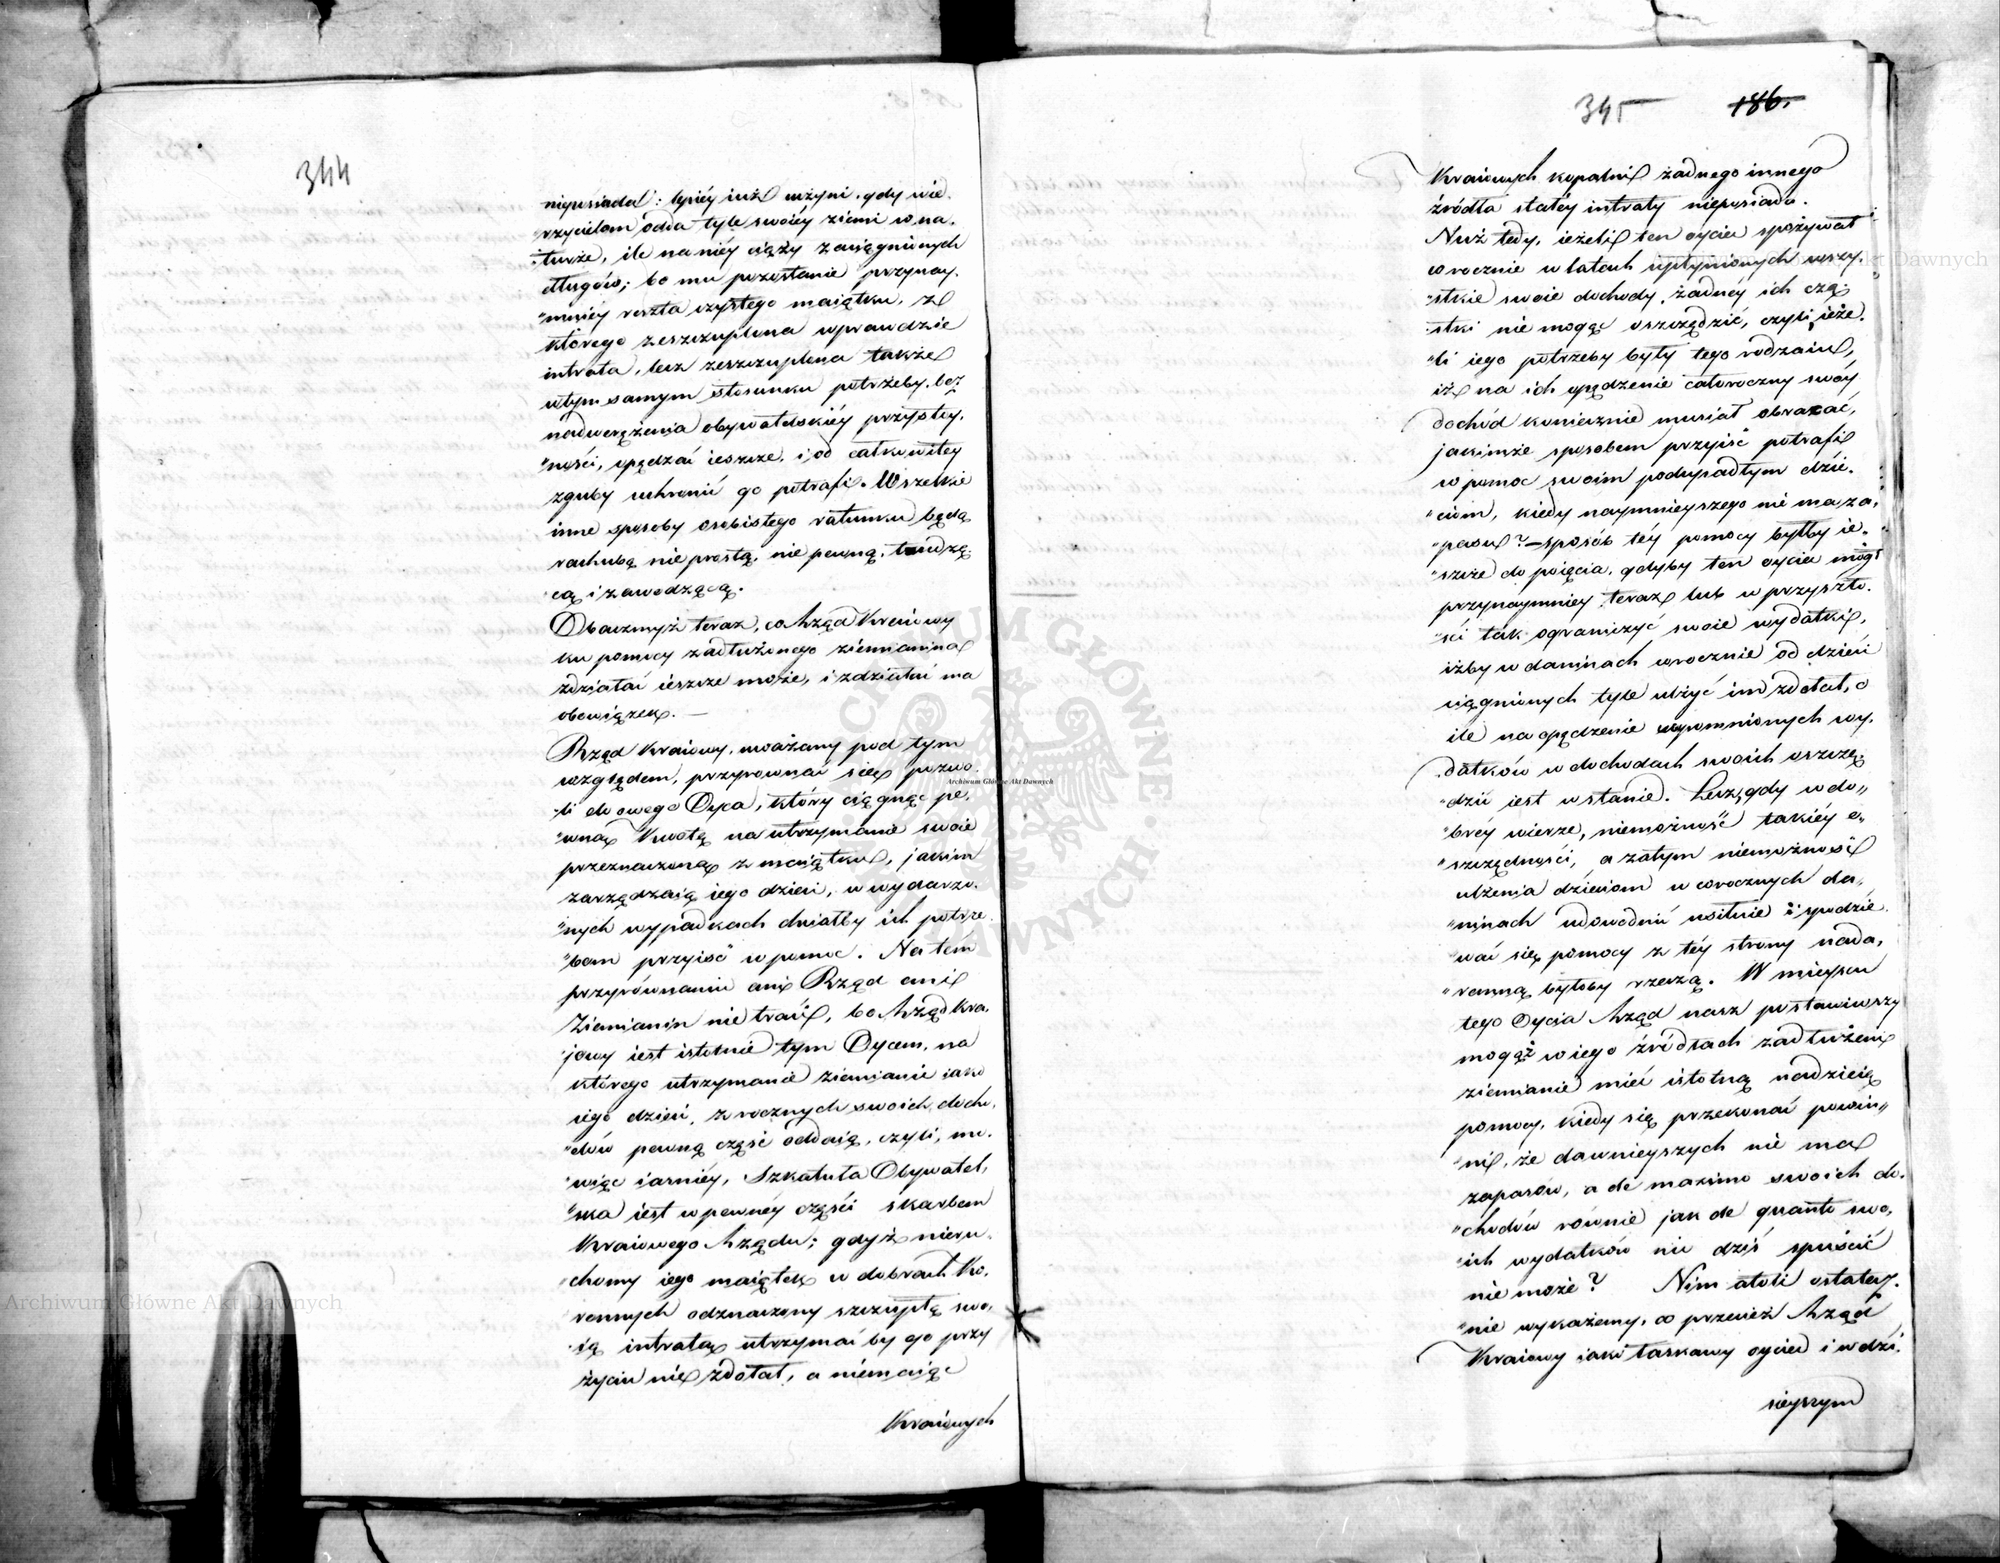 344
nieposiada: lepiéy iuż uczyni, gdy wie-
"rzycielom odda tyle swoiéy ziemi w na-
"turze, ile na niéy ciąży zaciągnionych
długów; bo mu pozostanie przynay-
"mniéy reszta czystego maiątku, z
którego zeszczuplona wprawdzie
intrata, lecz zeszczuplone także
w tym samym stosunku potrzeby, bez
nadwerężenia obywatelskiéy przystoy-
"ności, opędzać ieszcze, i od całkowitey
zguby uchronić go potrafi. Wszelkie
inne sposoby osobistego ratunku będą
rachubą nie prostą, nie pewną, łudzą-
cą i zawodzącą.
Obaczmyż teraz, co Rząd Kraiowy
ku pomocy zadłużonego ziemianina
zdziałać ieszcze może, i zdziałać ma
obowiązek. —
Rząd Kraiowy, uważany pod tym
względem, przyrownać się pozwo-
"li do owego Oyca, który ciągnąc pe-
"wną Kwotę na utrzymanie swoie
przeznaczoną z maiątku, jakim
zarządzaią iego dzieci, w wydarzo-
"nych wypadkach chciałby ich potrze-
"bom przyiść w pomoc. Na tém
przyrównaniu ani Rząd ani
Ziemianin nie traci, bo Rząd kra-
"jowy iest istotnie tym Oycem, na
którego utrzymanie ziemianie iako
iego dzieci, z rocznych swoich docho-
"dów pewną część oddaią, czyli, mó-
"wiąc iaśniéy, Szkatuła Obywatel-
"ska iest w pewnéy części skarbem
Kraiowego Rządu; gdyż nieru-
"chomy iego maiątek w dobrach Ko-
ronnych odznaczony szczupłą swo-
"ią intratą utrzymać by go przy
życiu nie zdołał, a niemaiąc
Kraiowych
345 186.
Kraiowych kopalni żadnego innego
źródła stałéy intraty nieposiada.
Nuż tedy, ieżeli ten oyciec spożywał
corocznie w latach upłynionych wszy-
"stkie swoie dochody, żadnéy ich czą-
"stki nie mogąc oszczędzić, czyli, ieże-
"li iego potrzeby były tego rodzaiu,
iż na ich opędzenie całoroczny swóy
dochód koniecznie musiał obracać,
jakimże sposobem przyiść potrafi
w pomoc swoim podupadłym dzie-
"ciom, kiedy naymnieyszego nie ma za-
"pasu? – sposób téy pomocy byłby ie-
"szcze do poięcia, gdyby ten oyciec mógł
przynaymniey teraz lub w przyszło-
"ści tak ograniczyć swoie wydatki,
iżby w daninach corocznie od dzieci
ciągnionych tyle ulżyć im zdołał, o
ile na opędzenie wspomnionych wy-
"datków w dochodach swoich oszczę-
"dzić iest w stanie. Lecz, gdy w do-
"bréy wierze, niemożność takiéy o-
"szczędności, a zatym niemożność
ulżenia dzieciom w corocznych da-
"ninach udowodnić usilnie i spodzie-
"wać się pomocy z téy strony nada-
"remną byłoby rzeczą. W mieyscu
tego Oyca Rząd nasz postawiwszy
mogąż w iego źródłach zadłużeni
ziemianie mieć istotną nadzieię
pomocy, kiedy się przekonać powin-
"ni, że dawnieyszych nie ma
zapasów, a de maximo swoich do-
"chodów równie jak de quanto swo-
"ich wydatków nic dziś spuścić
nie może? Nim atoli ostatecz-
"nie wykażemy, co przecież Rząd
Kraiowy iako łaskawy oyciec i w dzi-
sieyszym